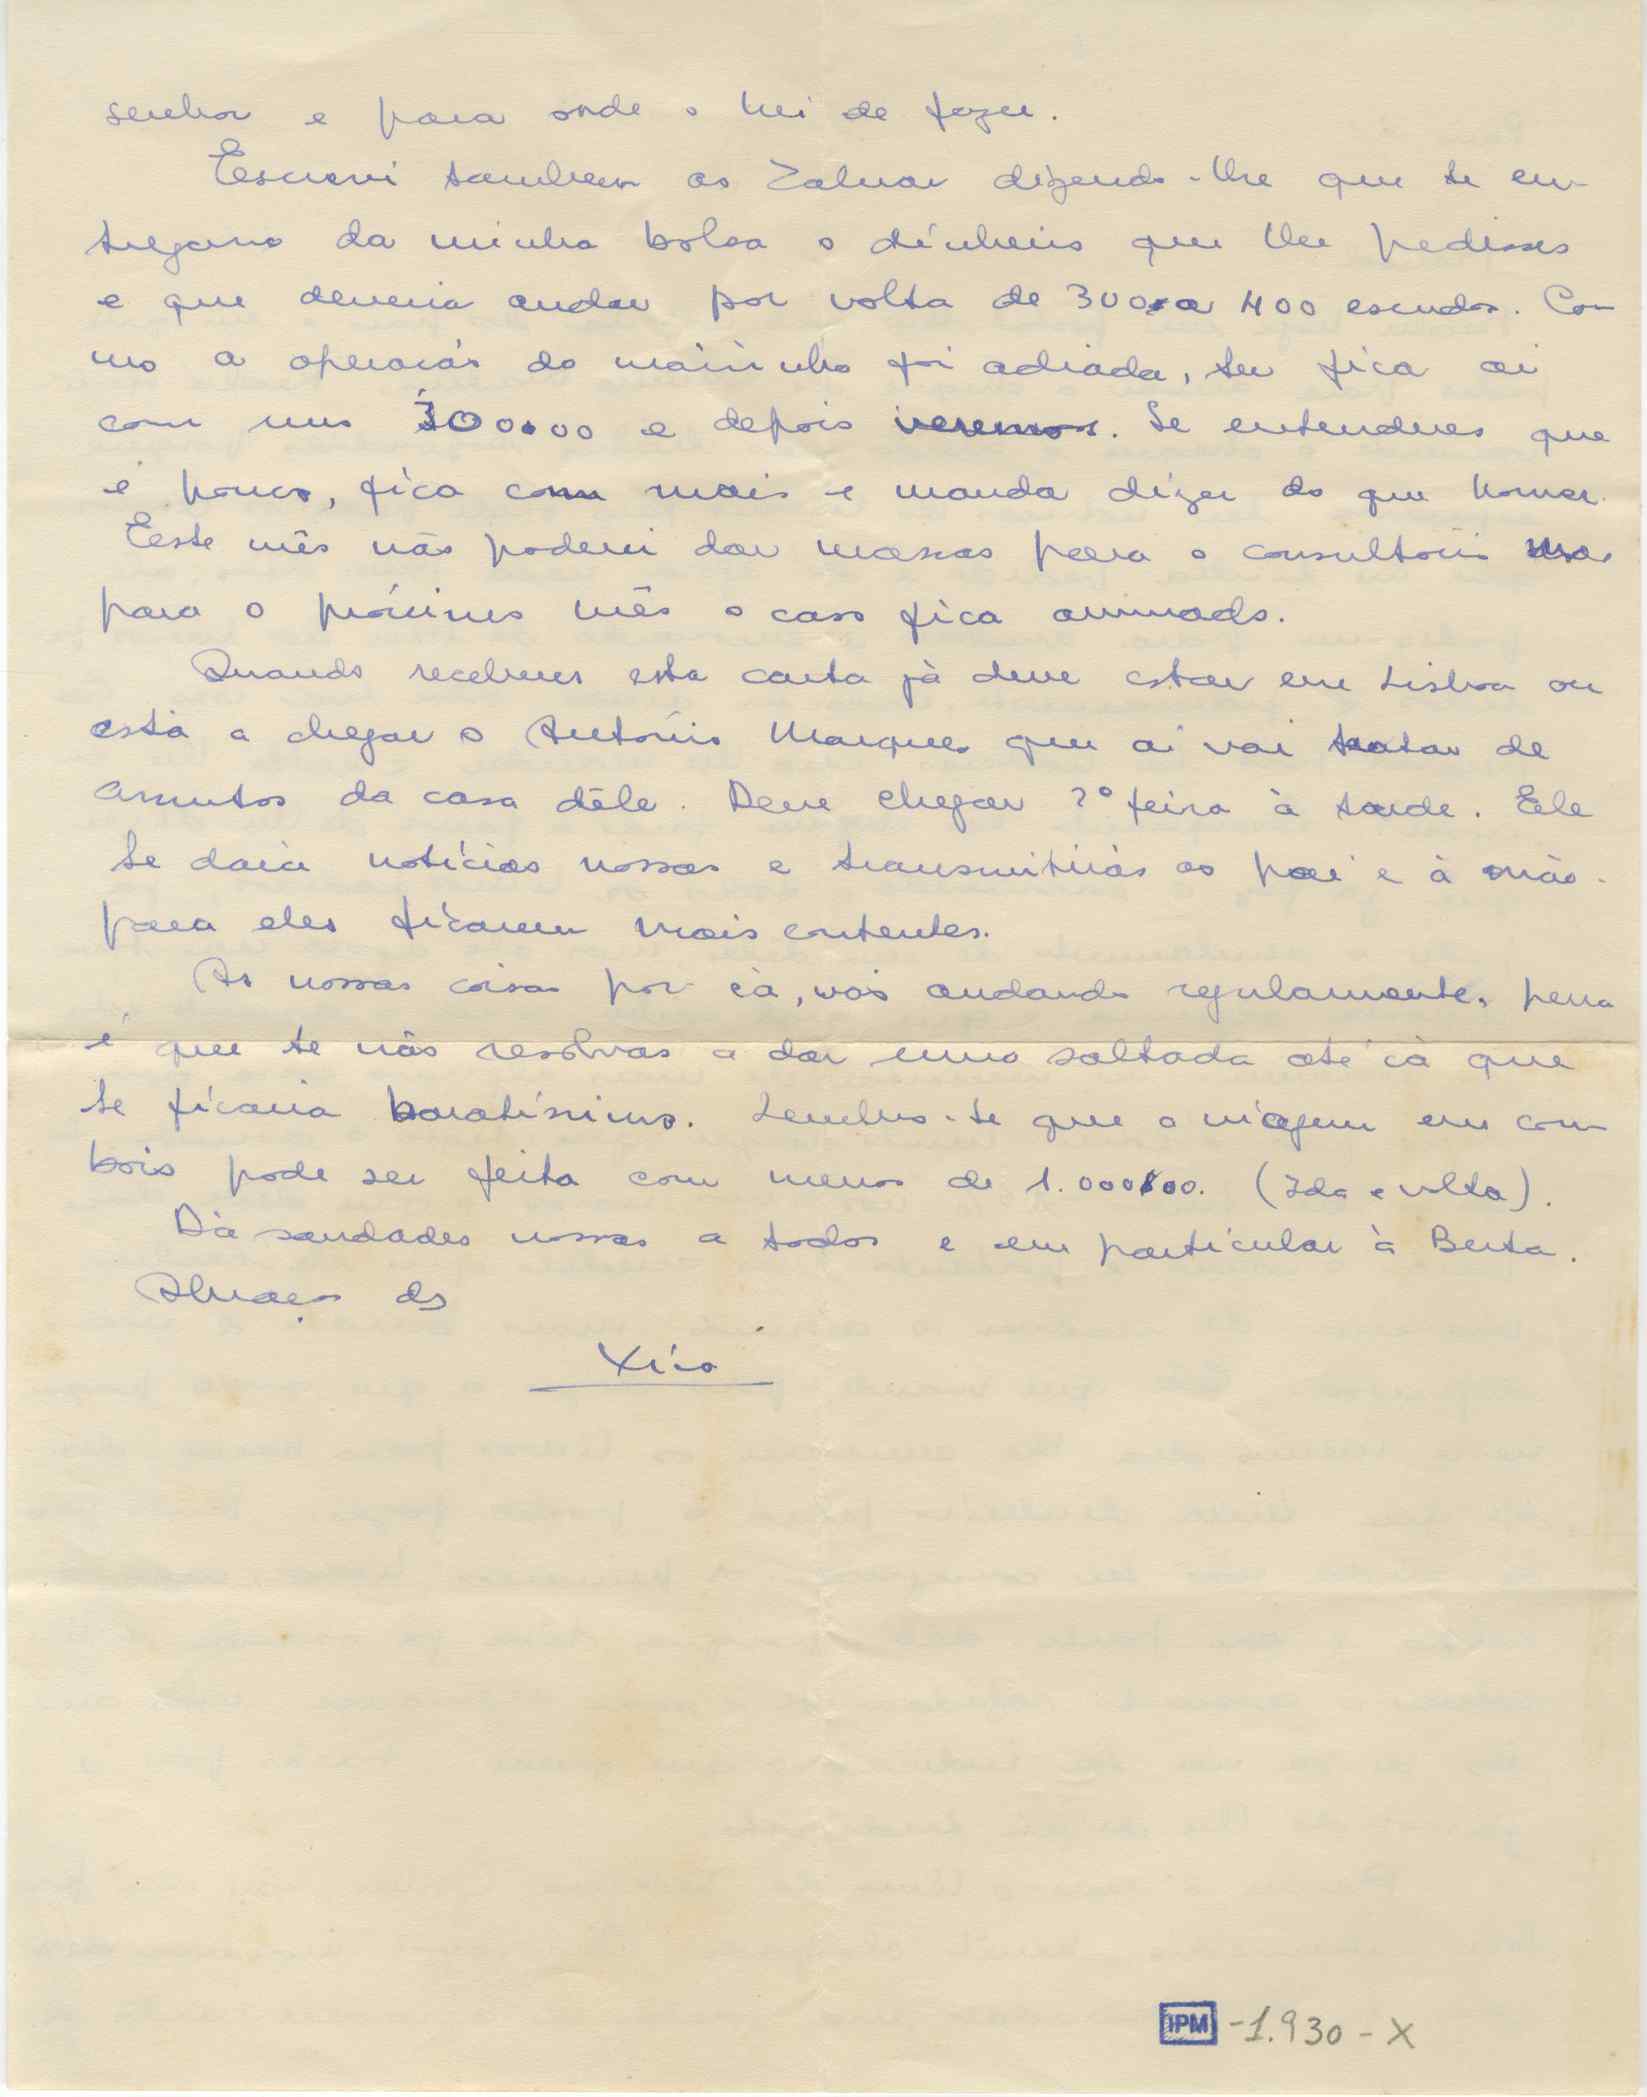 senhor e para onde o hei de fazer.
Escrevi tambem ao Zaluar dizendo-lhe que te en-
tregasse da minha bolsa o dinheiro que lhe pedisses
e que deveria andar por volta de 300 a 400 escudos. Co-
mo a operação do maninho foi adiada, tu fica aí
com uns 300$00 e depois veremos. Se entenderes que
é pouco, fica com mais e manda dizer do que houver.
Este mês não poderei dar massas para o consultório mas
para o próximo mês o caso fica arrumado.
Quando receberes esta carta já deve estar em Lisboa ou
está a chegar o António Marques que aí vai tratar de
assuntos da casa dêle. Deve chegar 2ª feira à tarde. Ele
te dará notícias nossas e transmitirás ao pai e à mãe
para eles ficarem mais contentes.
As nossas coisas por cá, vão andando regularmente, pena
é que te não resolvas a dar uma saltada até cá que
te ficaria baratíssimo. Lembra-te que a viagem em com-
boio pode ser feita com menos de 1.000$00. (Ida e volta).
Dá saudades nossas a todos e em particular à Berta.
Abraços do
Xico
IPM -1.930-X